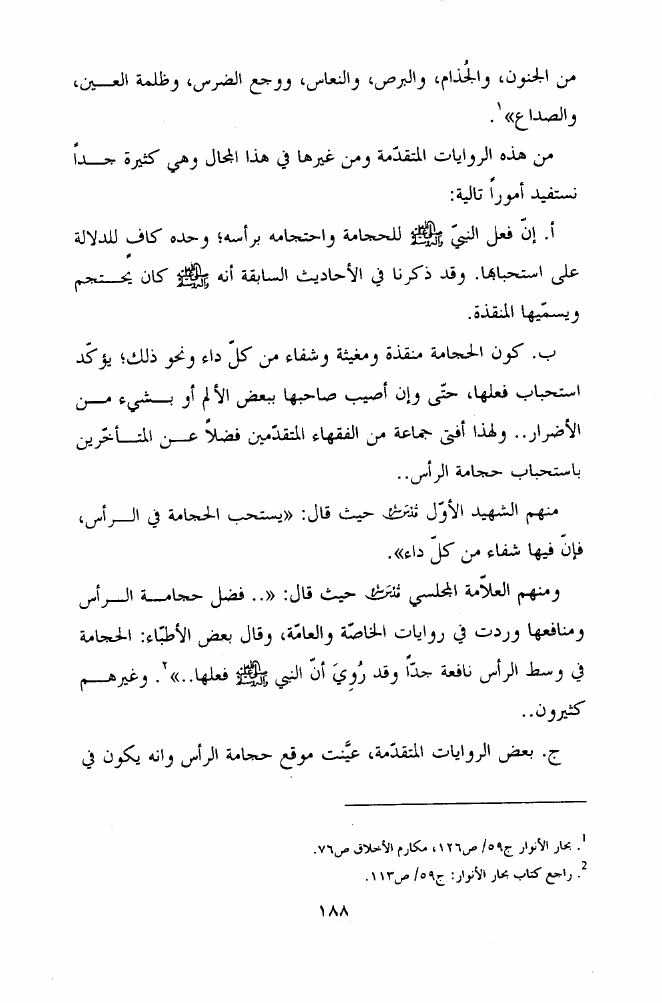 من الجنون، والجُذام، والبرص، والنعاس، ووجع الضرس، وظلمة العين،
والصداع»١.
من هذه الروايات المتقدّمة ومن غيرها في هذا المجال وهي كثيرة جداً
نستفيد أموراً تالية:
أ. إنّ فعل النبيّ ﷺ للحجامة واحتجامه برأسه؛ وحده كافٍ للدلالة
على استحبابها. وقد ذكرنا في الأحاديث السابقة أنه ﷺ كان يحتجم
ويسمّيها المنقذة.
ب. كون الحجامة منقذة ومغيثة وشفاء من كلّ داء ونحو ذلك؛ يؤكّد
استحباب فعلها، حتّى وإن أصيب صاحبها ببعض الألم أو بشيء من
الأضرار.. ولهذا أفتى جماعة من الفقهاء المتقدّمين فضلاً عن المتأخّرين
باستحباب حجامة الرأس..
منهم الشهيد الأوّل تدّسّ سرّه حيث قال: «يستحب الحجامة في الرأس،
فإنّ فيها شفاء من كلّ داء».
ومنهم العلاّمة المجلسي تدّسّ سرّه حيث قال: «.. فضل حجامة الرأس
ومنافعها وردت في روايات الخاصّة والعامّة، وقال بعض الأطبّاء: الحجامة
في وسط الرأس نافعة جدّاً وقد رُوِيَ أنّ النبي ﷺ فعلها..»٢. وغيرهم
كثيرون..
ج. بعض الروايات المتقدّمة، عيَّنت موقع حجامة الرأس وانه يكون في
1. بحار الأنوار ج٥٩/ ص١٢٦، مكارم الأخلاق ص٧٦.
2. راجع كتاب بحار الأنوار: ج٥٩/ ص١١٣.
١٨٨